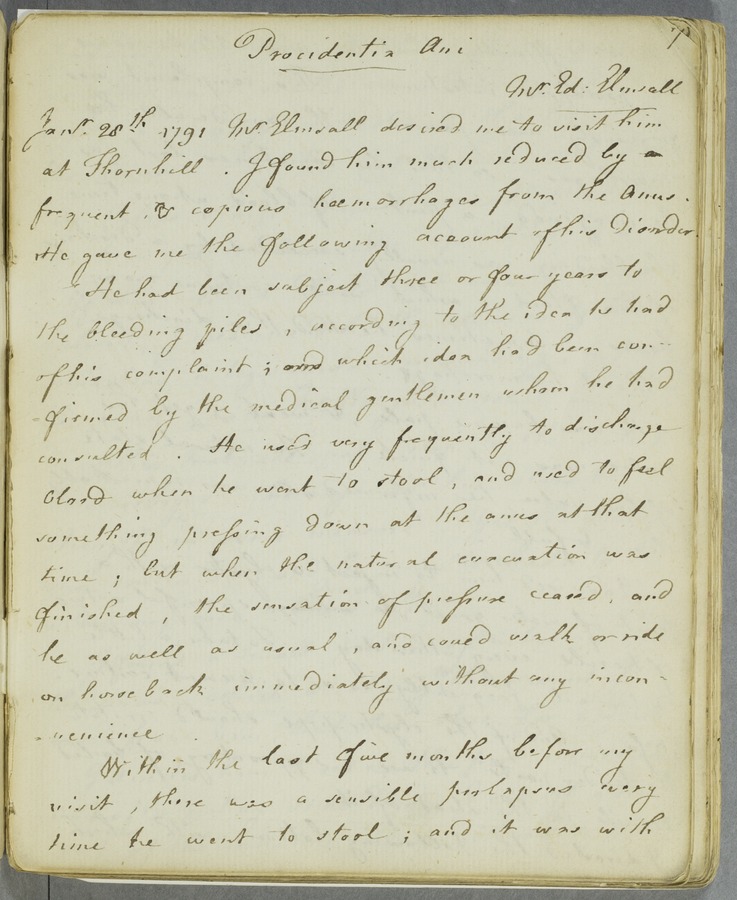 7
Procidentia Ani
Mr. Ed: Elmsall
Janr. 28th 1791 Mr. Elmsall desired me to visit him
at Thornhill. I found him much reduced by
frequent, & copious hæmorrhages from the Anus.
He gave me the following account of his Disorder.
He had been subject three or four years to
the bleeding piles, according to the idea he had
of his complaint; and which idea had been con-
-firmed by the medical gentlemen whom he had
consulted. He used very frequently to discharge
blood when he went to stool, and used to feel
something pressing down at the anus at that
time; but when the natural evacuation was
finished, the sensation of pressure ceased, and
he as well as usual, and coued walk or ride
on horseback immediately without any incon-
-venience.
Within the last five months before my
visit, there was a sensible prolapsus every
time he went to stool; and it was with